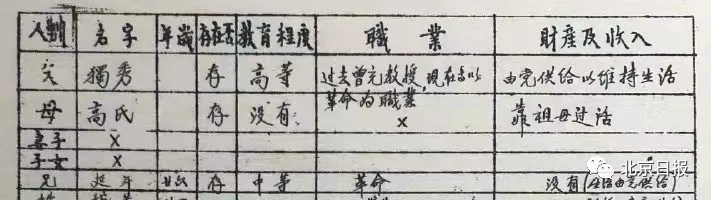 人判 名字 年歲 存在否 教育程度 職業 財產及收入
父 獨秀 存 高等 过去曾充教授,现在專以 由党供给以维持生活
革命为職業
母 高氏 存 没有 x 靠祖母过活
妻子 x
子女 x
兄 延年 存 中等 革命 没有(生活由党供给)
北京日报